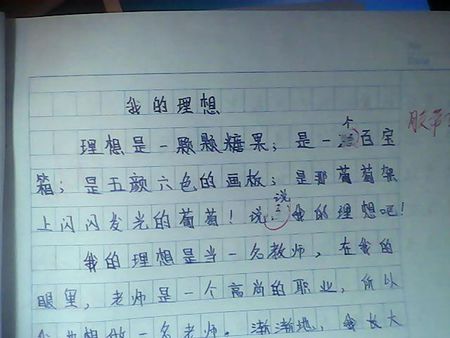 我的理想
理想是一颗颗糖果；是一个百宝
箱；是五颜六色的画板；是那葡萄架
上闪闪发光的葡萄！说说我的理想吧！
我的理想是当一名教师，在我的
眼里，老师是一个高尚的职业，所以
想做一名老师。渐渐地，我长大